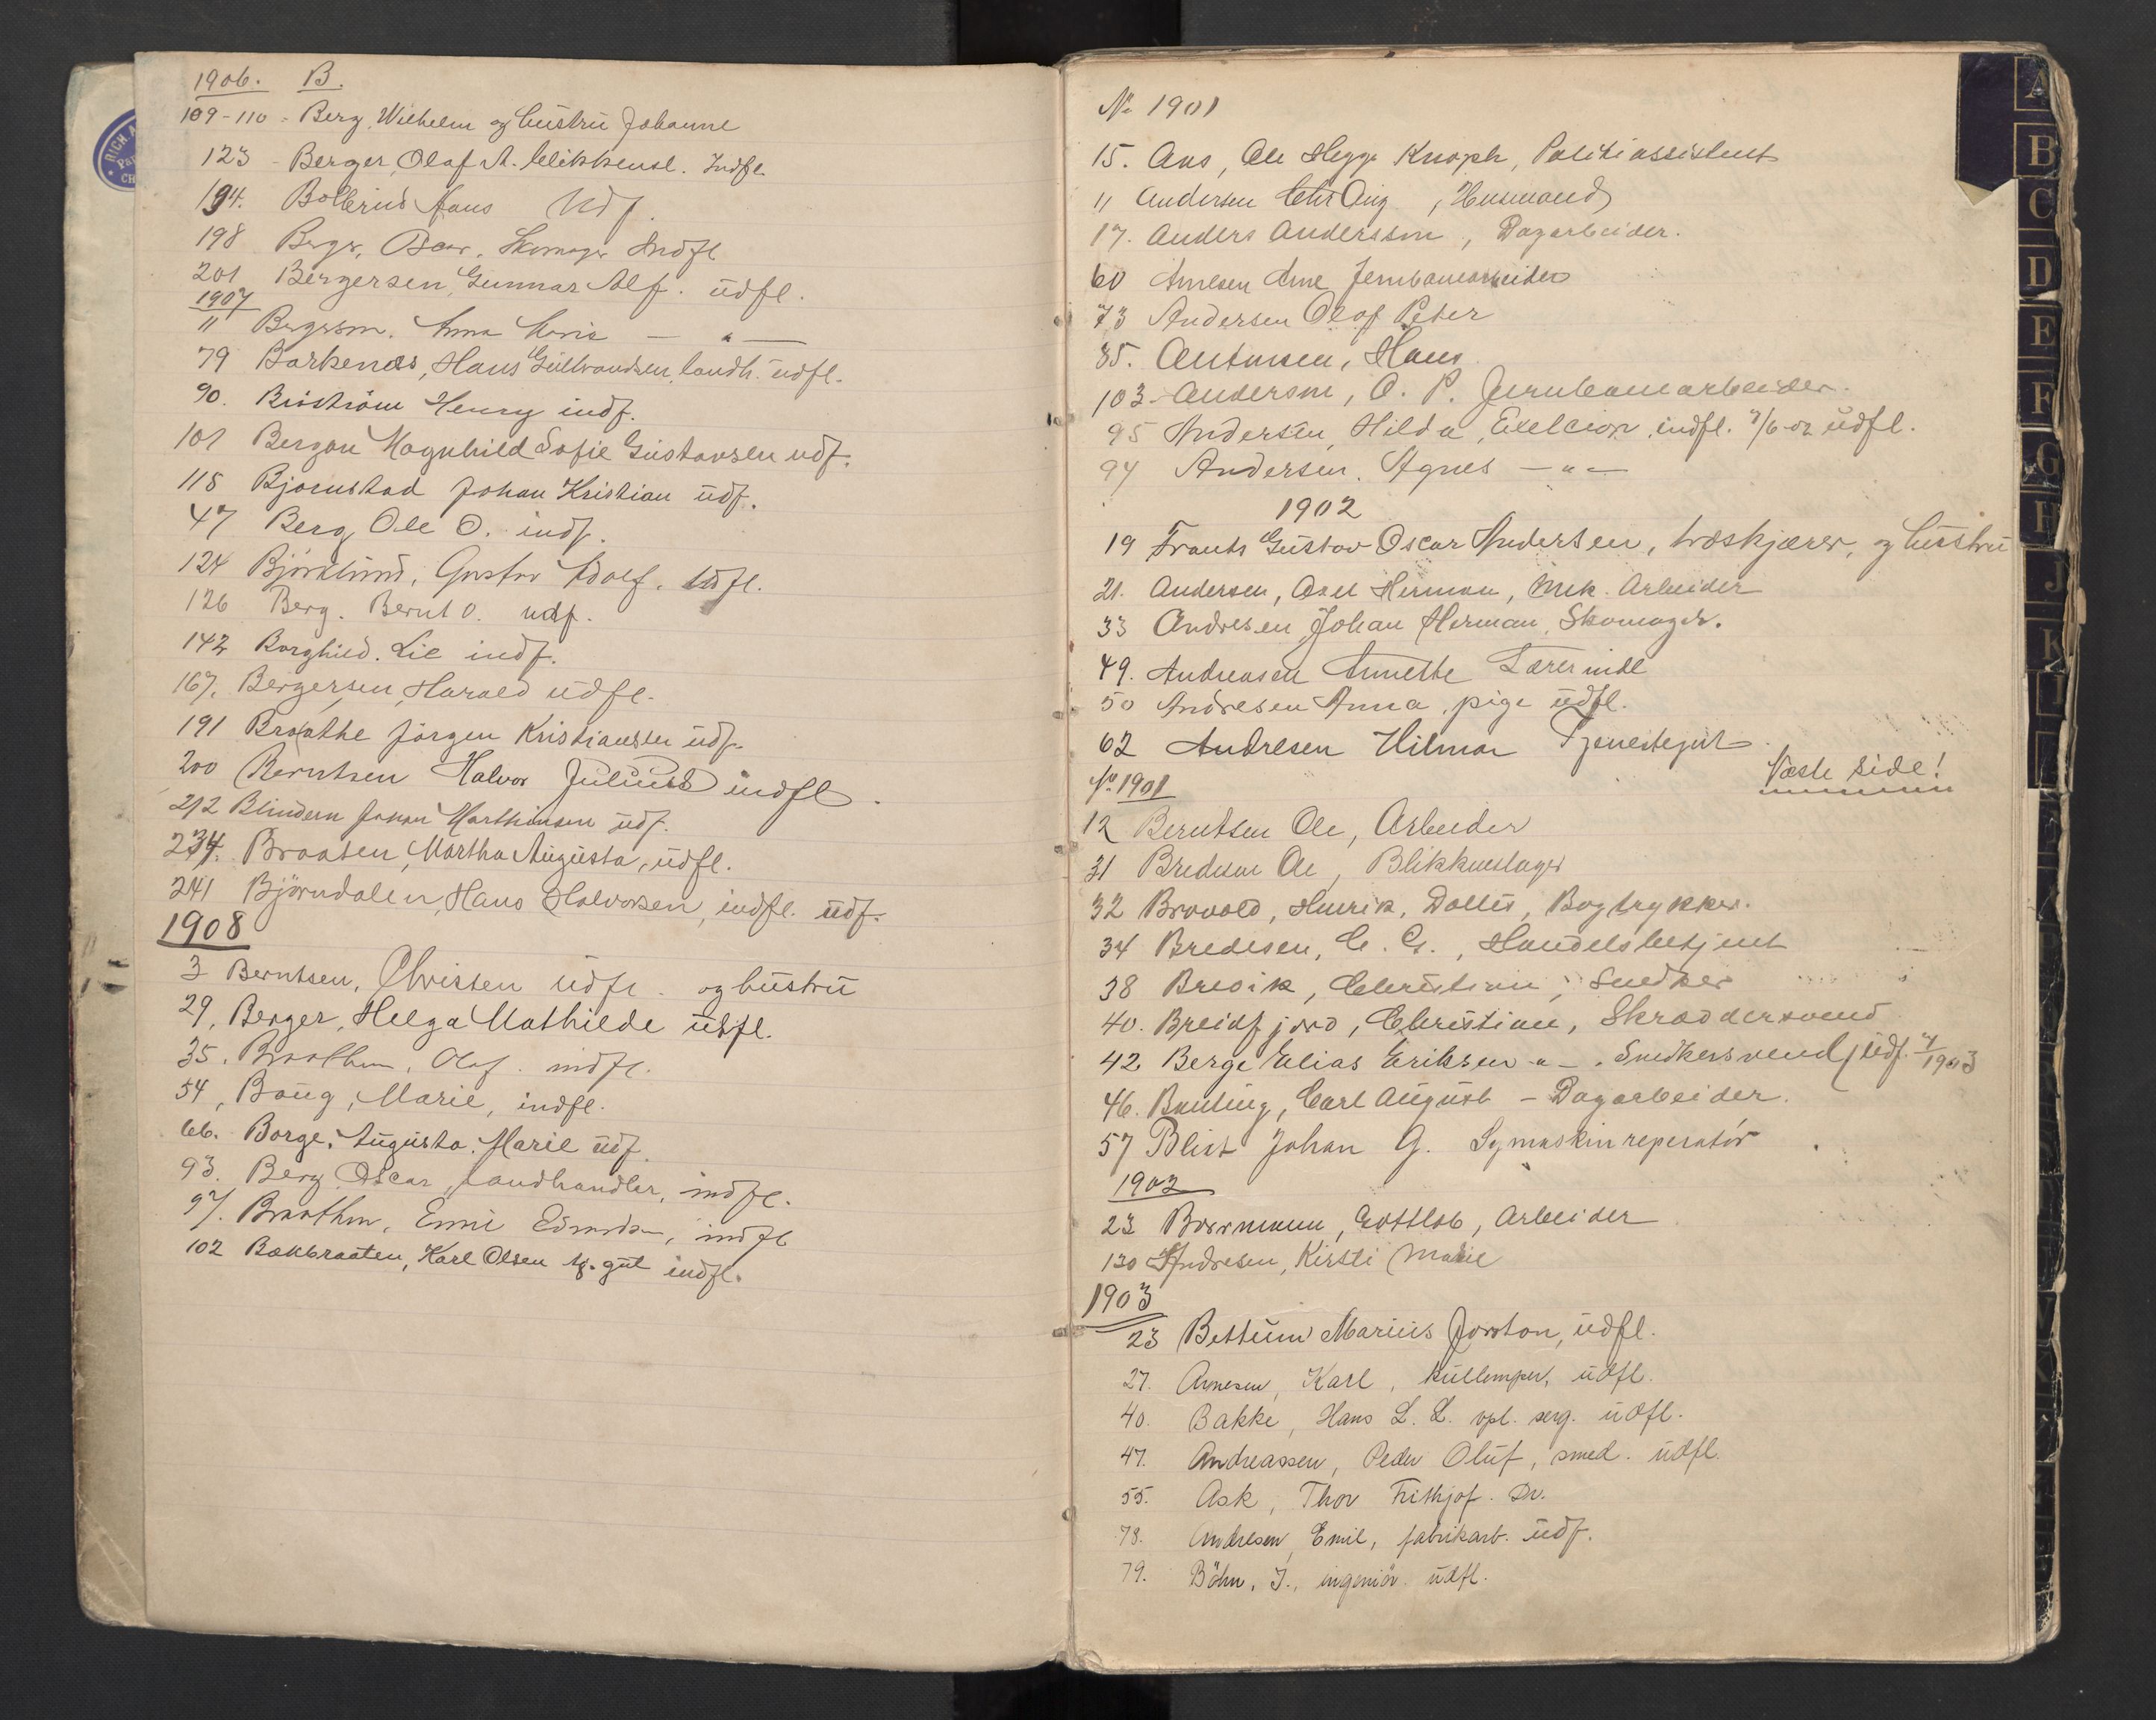 1906. B.
109-110 - Berg, Wilhelm og hustru Johanne
123 - Berger, Olaf A. Blikkensl. Indfl.
194. Bollerud Hans Udf.
198 Berger, Oscar. Skomager Indfl
201 Bergersen, Gunnar Alf. udfl.
1907
11 Bergersen. Anna Maria — " —
79 Barkenæs, Hans Gulbrandsen, landh. udfl.
90. Broström Henry indf.
101 Bergan Magnhild Sofie Gustavsen udf.
118 Bjørnstad Johan Kristian udf.
47 Berg, Ole O. indf.
124 Björklund, Gustav Adolf. udfl.
126 Berg. Bernt O. udf.
142 Borghild. Lie indf.
167. Bergersen, Harald udfl.
191 Braathe Jørgen Kristiansen udf.
200 Berntsen Halvor Julius indfl.
212 Blindern Johan Marthinsen udf.
234. Braaten, Martha Augusta, udfl.
241 Björndalen, Hans Halvorsen, indfl. udf.
1908
3 Berntsen, Christen udfl. og hustru
29, Berger, Helga Mathilde udfl.
35. Braathen, Olaf. indfl.
54, Baug, Marie, indfl.
66. Borge, Augusta. Marie udf.
93. Berg Oscar, landhandler, indfl.
97. Braathen, Emil Edvardsen, indfl
102 Bakbraaten, Karl Olsen tj. gut indfl.
No 1901
15. Aas, Ole Hegge Knoph, Politiassistent
11 Andersen Chr Aug, Husmand
17. Anders Anderssen, Dagarbeider.
60 Arnesen Arne Jernbanearbeider
73 Andersen Olaf Peter
85. Antonsen, Hans
103 - Andersen, O. P. Jernbanearbeider.
95 Andersen, Hilda, Exelcior, indfl. 7/6-02 udfl.
94 Andersen. Agnes — " —
1902
19 Frants Gustav Oscar Andersen, træskjærer, og hustru
21. Andersen, Axel Herman, Mek. Arbeider
33 Andresen, Johan Herman, Skomager.
49. Andreasen Annette Lærerinde
50 Andresen Anna, pige udfl.
62 Andresen Hilmar Tjenestegut
Næste side!
No 1901
12 Berntsen Ole, Arbeider
31 Bredesen Ole, Blikkenslager
32 Brovold, Henrik, Bogtrykker.
34 Bredesen, C. G., Handelsbetjent
38 Brevik, Christian, Snedker
40. Breidfjord, Christian, Skræddersvend
42 Berge Elias Eriksen - " - . Snedkersvend, udf. 1903
46. Bunting, Carl August - Dagarbeider.
57 Blist Johan G. Symaskinreperatør
1902
23 Boormann, Gottlob, Arbeider
130 Andresen, Kirsti Marie
1903
23 Bettum Marius Jonston, udfl.
27. Arnesen, Karl, kullemper, udfl.
40. Bakke, Hans L. L. vpl. serg. udfl.
47. Andreassen, Peder Oluf, smed. udfl.
55. Ask, Thor Frithjof. Dr.
78. Andresen, Emil, fabrikarb. udf.
79. Böhn, J., ingeniör udfl.
A
B
C
D
E
F
G
H
J
K
L